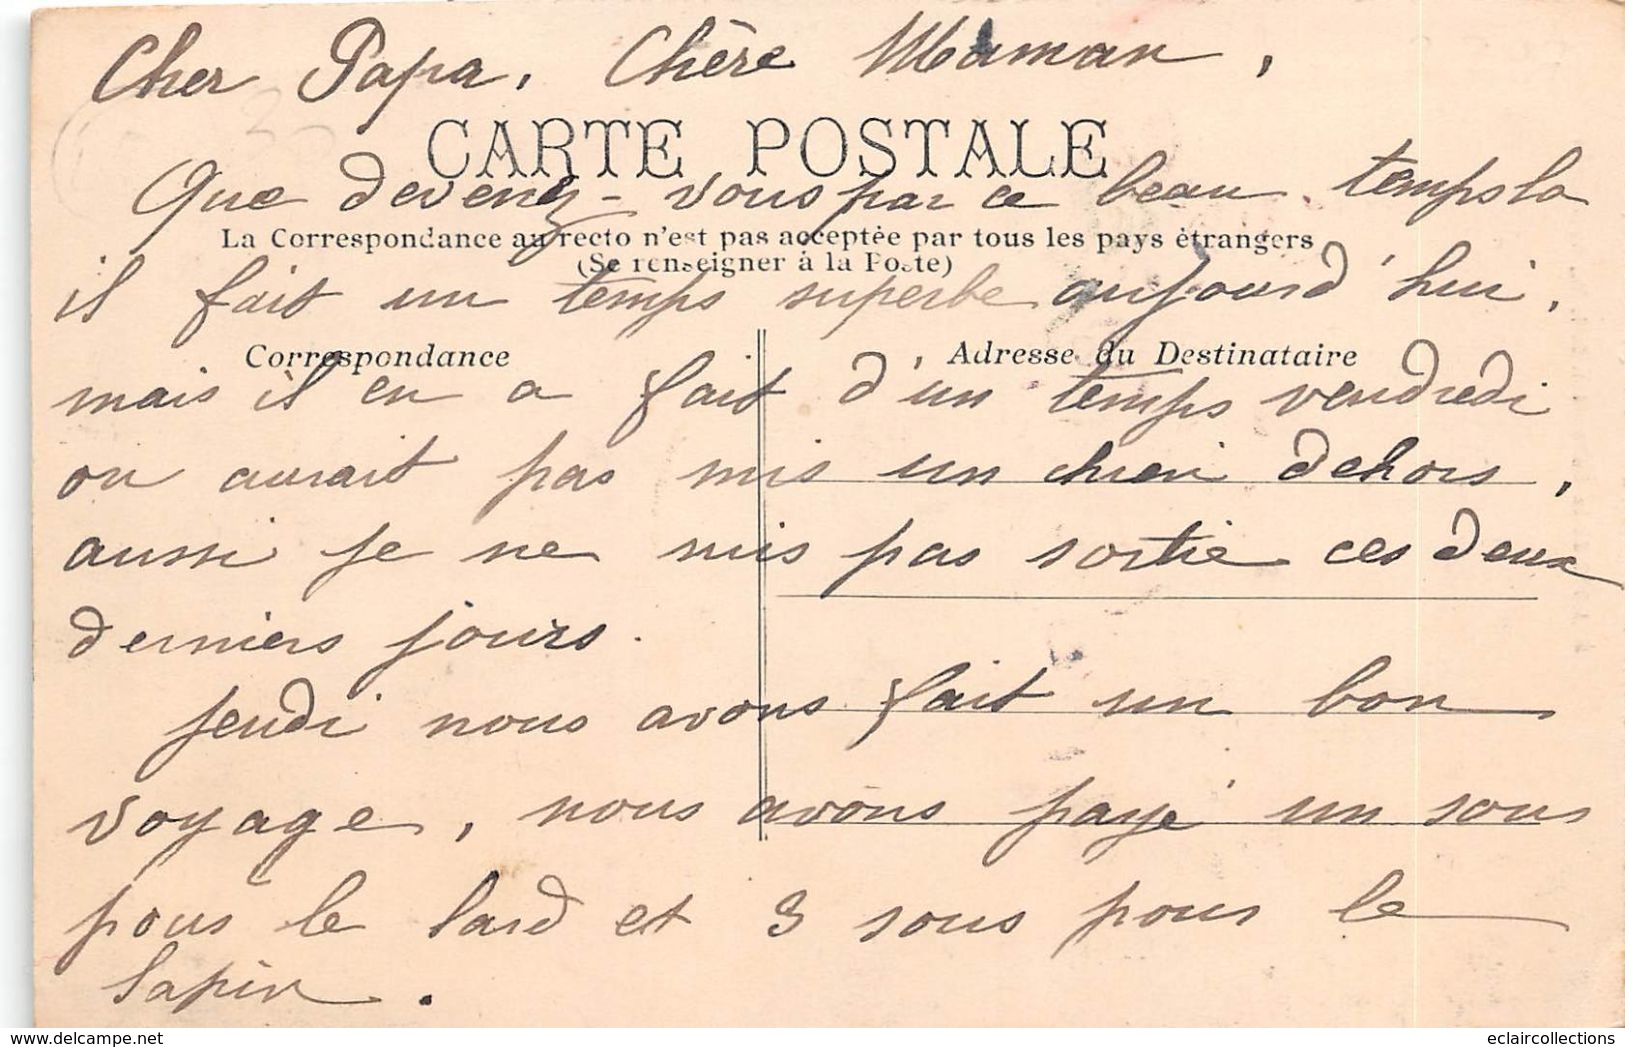 Cher Papa, Chère Maman,
CARTE POSTALE
Que devenez-vous par ce beau temps la
La Correspondance au recto n'est pas acceptée par tous les pays étrangers
(Se renseigner à la Poste)
il fait un temps superbe aujourd'hui,
Correspondance
Adresse du Destinataire
mais il en a fait d'un temps vendredi
on aurait pas mis un chien dehors,
aussi je ne suis pas sortie ces deux
derniers jours.
Jeudi nous avons fait un bon
voyage, nous avons payé un sous
pour le lard et 3 sous pour le
lapin.
eclaircollections